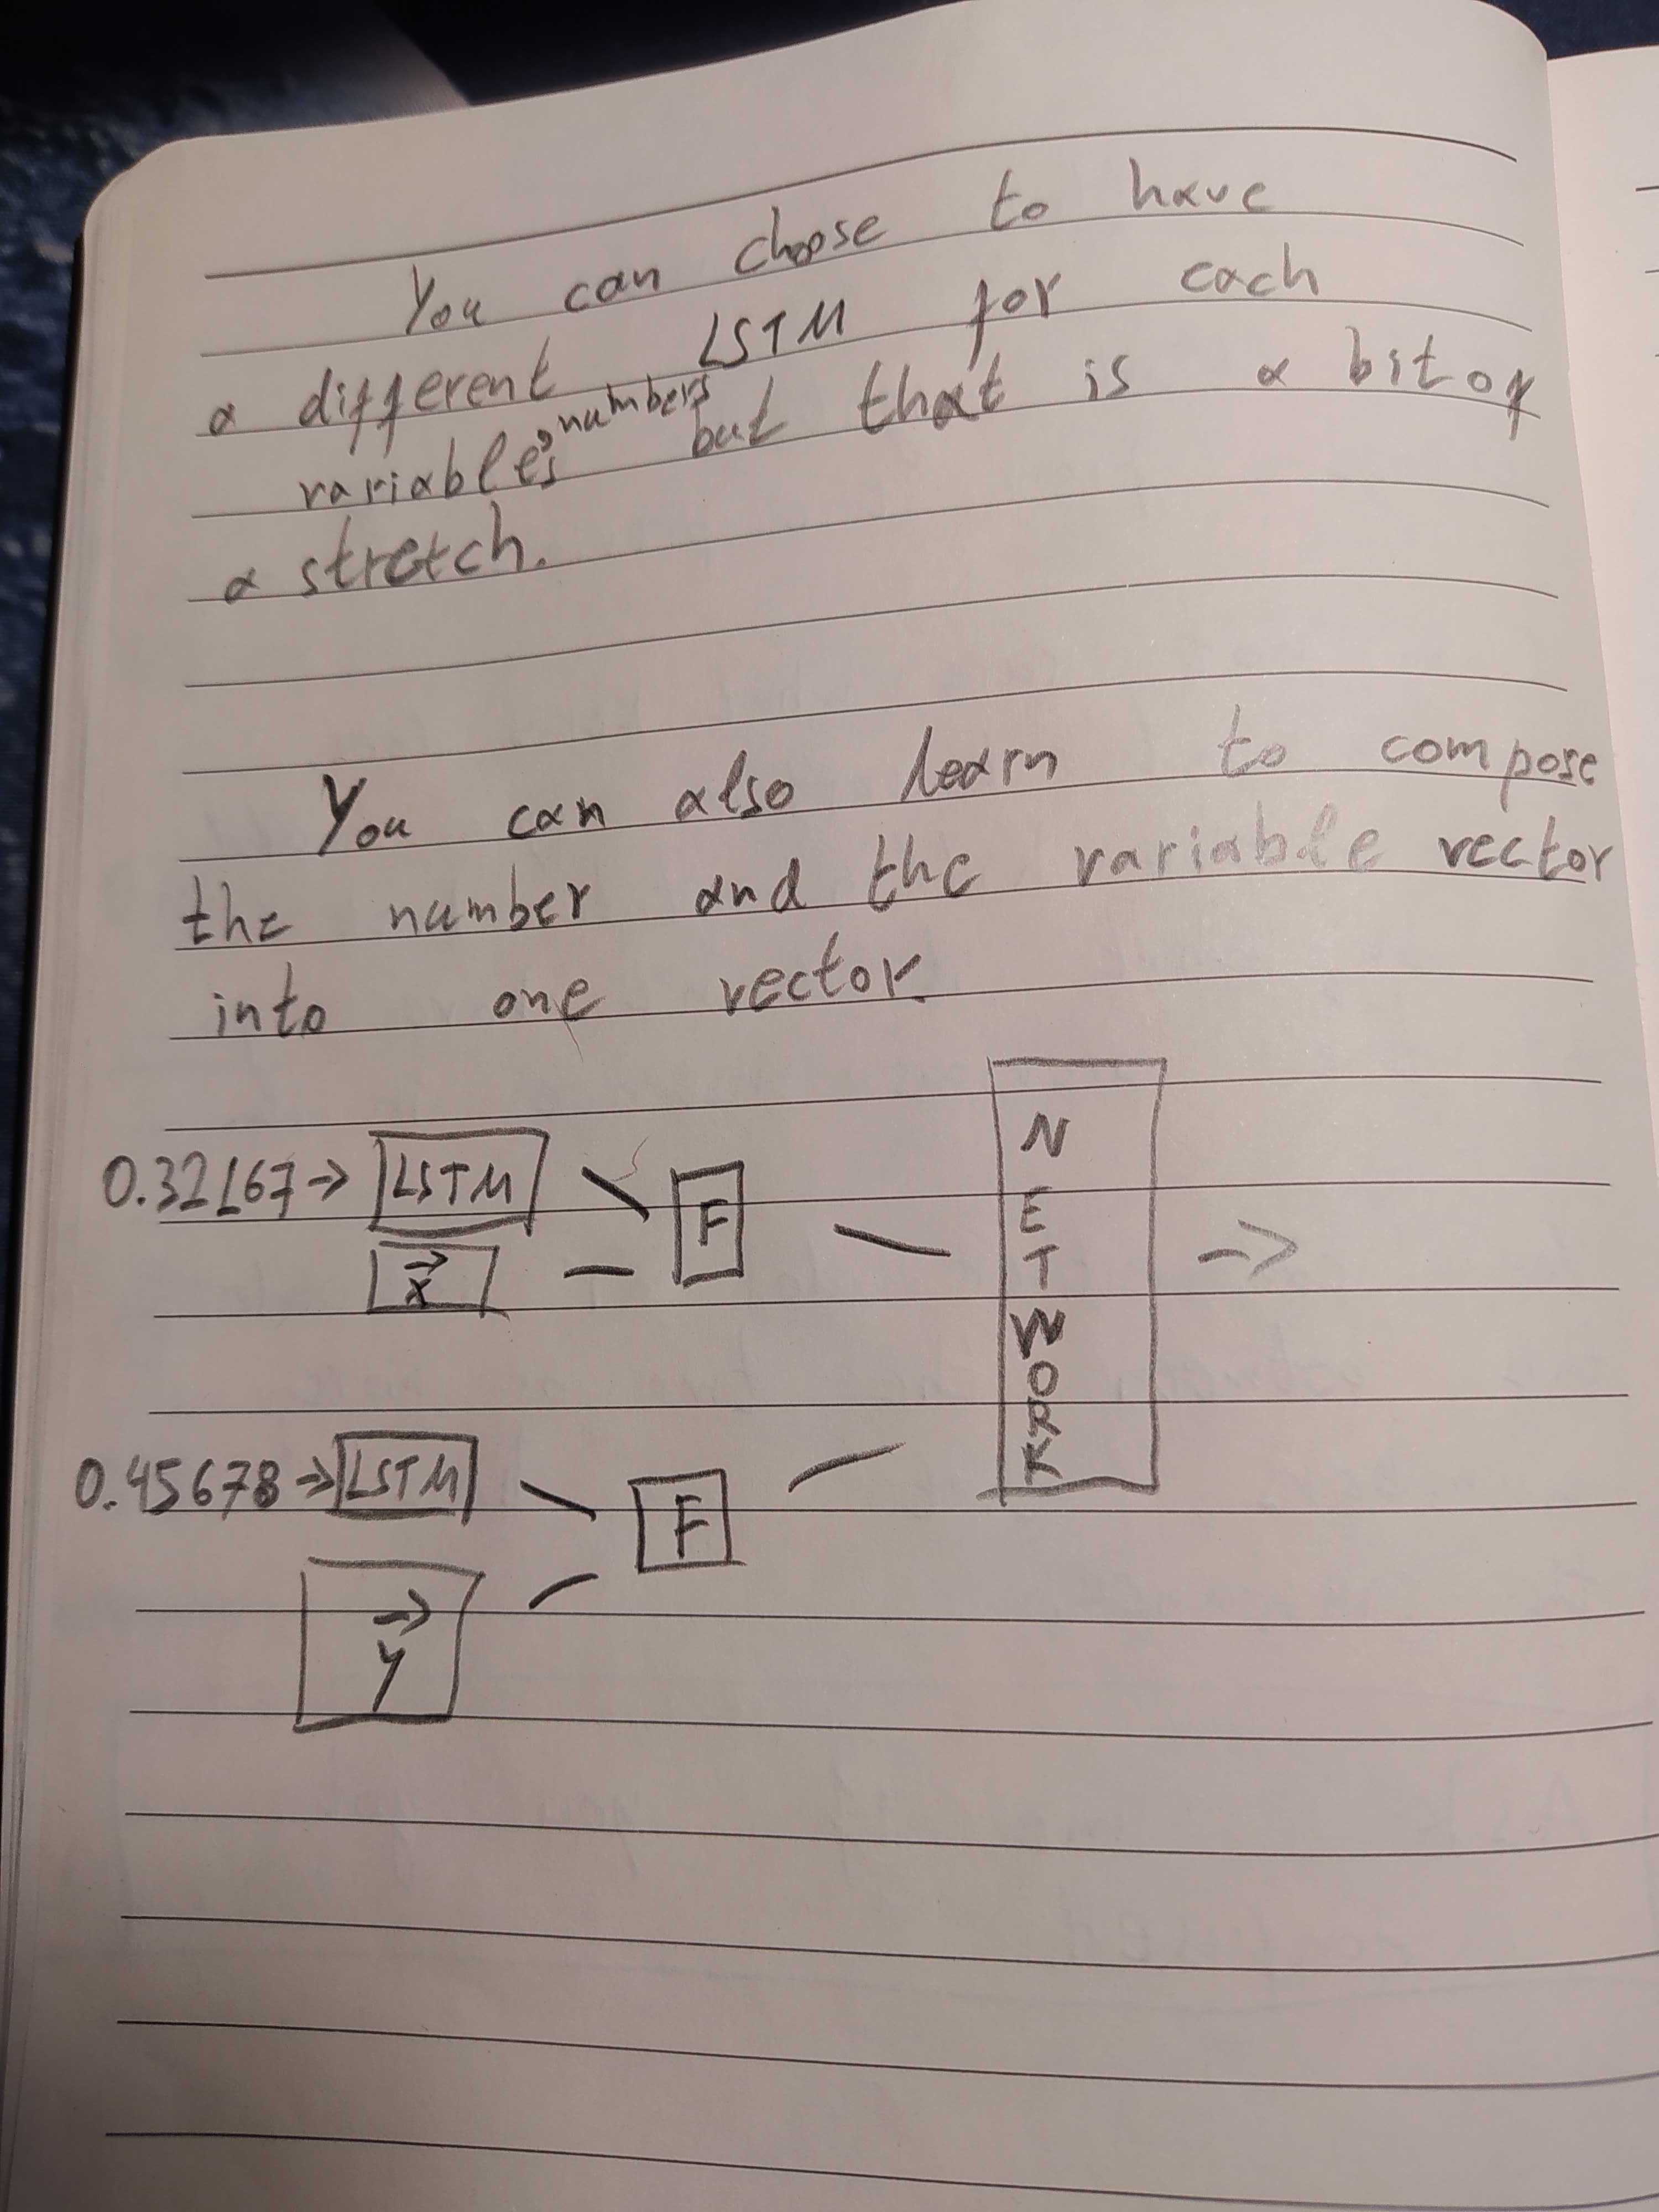 You can choose to have
a different LSTM for each
variable's numbers but that is a bit of
a stretch.
You can also learn to compose
the number and the variable vector
into one vector
0.32167 → LSTM
F
x
0.45678 → LSTM
F
y
NETWORK →